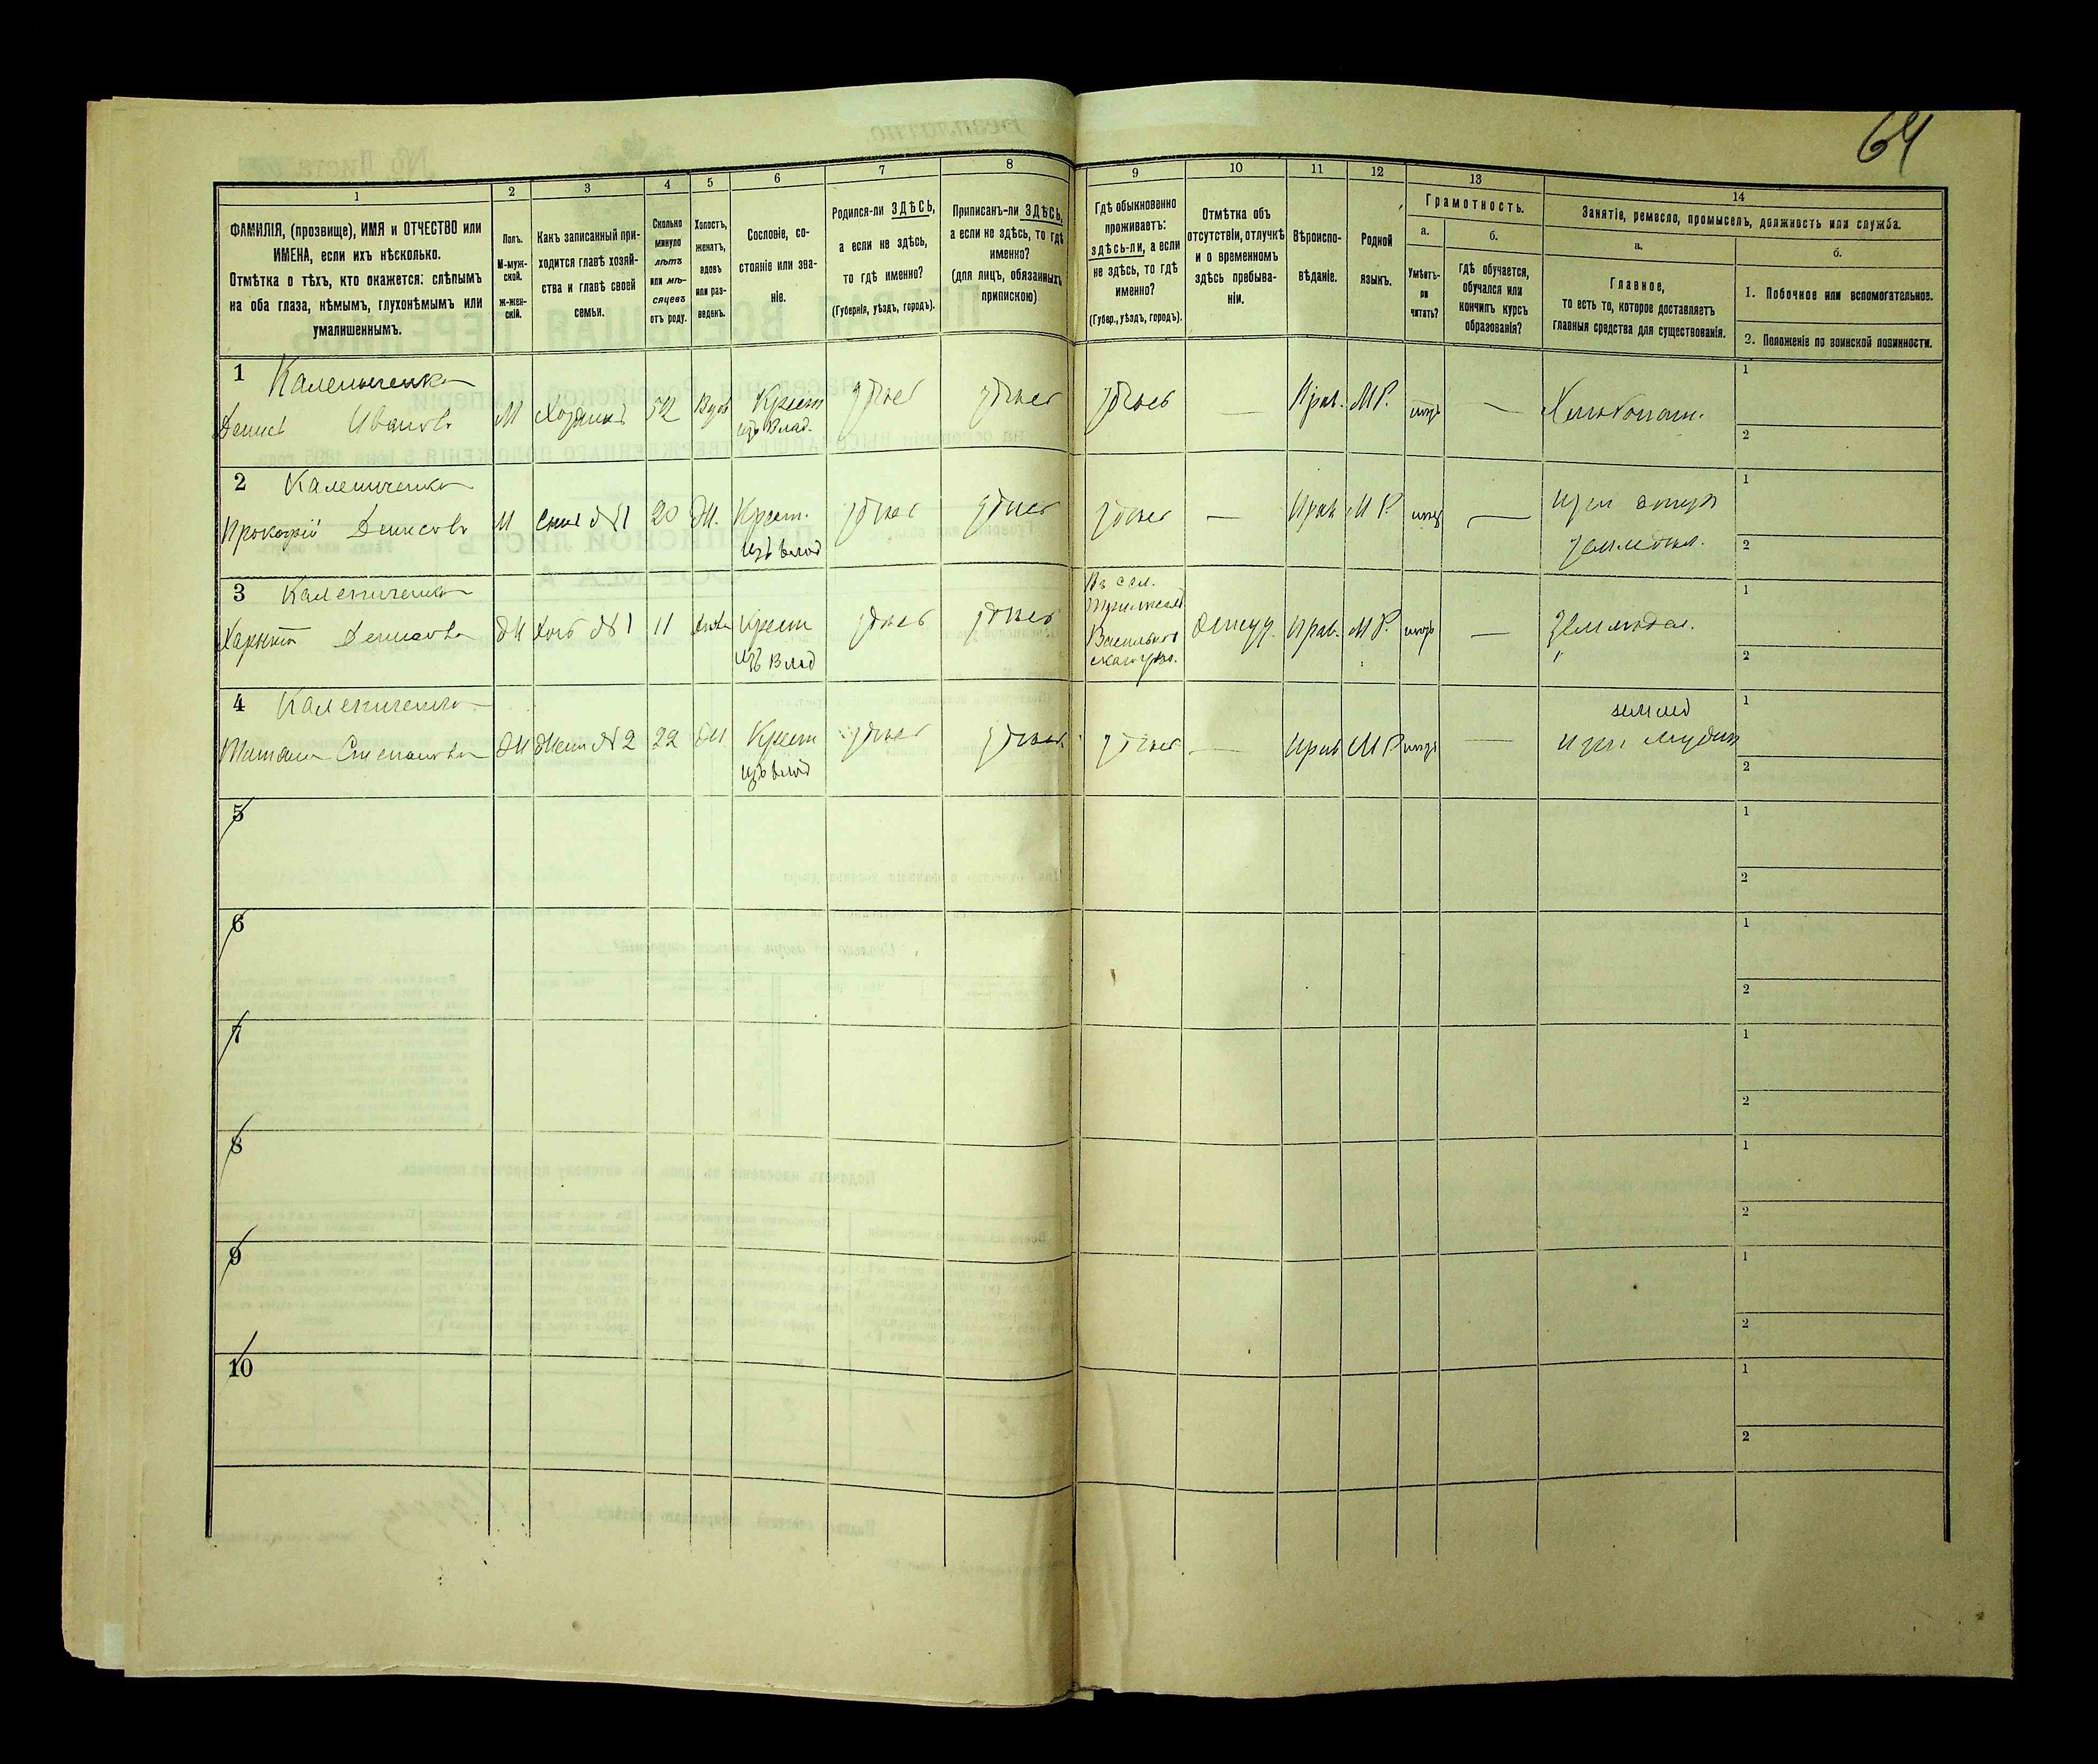 64
1 2 3 4 5 6 7 8 9 10 11 12 13 14
ФАМИЛІЯ, (прозвище), ИМЯ и ОТЧЕСТВО или
ИМЕНА, если ихъ нѣсколько.
Отмѣтка о тѣхъ, кто окажется: слѣпымъ
на оба глаза, нѣмымъ, глухонѣмымъ или
умалишеннымъ.
Полъ.
М-муж-
ской.
Ж-жен-
скій.
Какъ записанный при-
ходится главѣ хозяй-
ства и главѣ своей
семьи.
Сколько
минуло
лѣтъ
или мѣ-
сяцевъ
отъ роду.
Холостъ,
женатъ,
вдовъ
или раз-
веденъ.
Сословіе, со-
стояніе или зва-
ніе.
Родился-ли ЗДѢСЬ,
а если не здѣсь,
то гдѣ именно?
(Губернія, уѣздъ, городъ).
Приписанъ-ли ЗДѢСЬ,
а если не здѣсь, то гдѣ
именно?
(для лицъ, обязанныхъ
припискою)
Гдѣ обыкновенно
проживаетъ:
здѣсь-ли, а если
не здѣсь, то гдѣ
именно?
(Губер., уѣздъ, городъ).
Отмѣтка объ
отсутствіи, отлучкѣ
и о временномъ
здѣсь пребыва-
ніи.
Вѣроиспо-
вѣданіе.
Родной
языкъ.
Грамотность.
а.
Умѣетъ-
ли
читать?
б.
Гдѣ обучается,
обучался или
кончилъ курсъ
образованія?
Занятіе, ремесло, промыселъ, должность или служба.
а.
Главное,
то есть то, которое доставляетъ
главныя средства для существованія.
б.
1. Побочное или вспомогательное.
2. Положеніе по воинской повинности.
1 Калениченко
Денисъ Ивановъ М Хозяинъ 52 Вдов Крест здѣсь здѣсь здѣсь — Прав. М Р. —
изъ Влад.
1
2
2 Калениченко
Прокофій Денисовъ М Сынъ №1 20 Ж. Крест. здѣсь здѣсь здѣсь — Прав М Р. —
изъ влад
1
2
3 Калениченко
Денисова Ж Дочь №1 11 Крест здѣсь здѣсь Отсут. Прав. М Р. —
изъ Влад
Въ сел.
Васильков
скаго уѣз.
1
2
4 Калениченко
Татьяна Степановна Ж Жена №2 22 Крест здѣсь здѣсь здѣсь — Прав М Р —
изъ влад
землед
при мужѣ
1
2
5
1
2
6
1
2
7
1
2
8
1
2
9
1
2
10
1
2